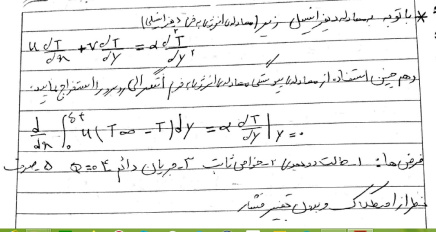 * با توجه به معادله دیفرانسیل زیر (معادله انرژی به فرم دیفرانسیلی)
u dT/dx + v dT/dy = α d²T/dy²
و همچنین استفاده از معادله پیوستگی معادله انرژی به فرم انتگرالی رو استخراج نمایید.
d/dx ∫₀^δt u(T∞ - T)dy = α dT/dy |y=0
فرض ها: 1- حالت دو بعدی 2- خواص ثابت 3- جریان دائم 4 Q=0 5 صرف
نظر از اصطکاک و بدون تغییر فشار